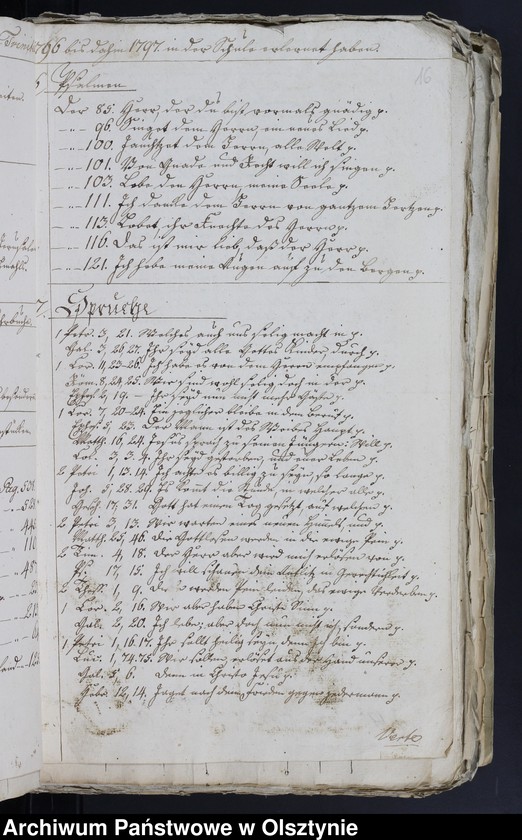 1796 bis dahin 1797. in der Schule erlernet haben.
16
Psalmen
Der 85. Herr, der du bist vormals gnädig p.
— „ — 96. Singet dem Herrn, ein neues Lied p.
— „ — 100. Jauchzet dem Herrn, alle Welt p.
— „ — 101. Von Gnade und Recht will ich singen p.
— „ — 103. Lobe den Herrn meine Seele p.
— „ — 111. Ich danke dem Herrn von gantzem Hertzen p.
— „ — 113. Lobet, ihr Knechte des Herrn p.
— „ — 116. Das ist mir lieb, daß der Herr p.
— „ — 121. Ich hebe meine Augen auf zu den Bergen p.
7. Sprüche
1 Petr. 3, 21. Welches auch uns selig macht in p.
Gal. 3, 26, 27. Ihr seyd alle Gottes Kinder, durch p.
1 Cor. 11, 23-26. Ich habe es von dem Herrn empfangen p.
Röm. 8, 24, 25. Wir sind wohl selig doch in der p.
Ephes. 2, 19. — Ihr seyd nun nicht mehr Gäste p.
1 Cor. 7, 20-24. Ein jeglicher bleibe in dem Beruf p.
Ephes. 5, 23. Der Mann ist des Weibes Haupt p.
Matth. 16, 24. Jesus sprach zu seinen Jüngern: Will p.
Col. 3, 3. 4. Ihr seyd gestorben, und euer Leben p.
2 Petri 1, 13. 14. Ich achte es billig zu seyn, so lange p.
Joh. 5, 28. 29. Es kommt die Stunde, in welcher alle p.
Gesch. 17, 31. Gott hat einen Tag gesetzt, auf welchen p.
2 Petri 3, 13. Wir warten eines neuen Himmels, und p.
Matth. 25, 46. Die Gottlosen werden in die ewige Pein p.
2 Tim. 4, 18. Der Herr aber wird mich erlösen von p.
Ps. 17, 15. Ich will schauen dein Antlitz in Gerechtigkeit p.
2 Thess. 1, 9. Die werden Pein leiden, das ewige Verderben p.
1 Cor. 2, 16. Wir aber haben Christi Sinn p.
Gal. 2, 20. Ich lebe; aber doch nun nicht ich, sondern p.
1 Petri 1, 16. 17. Ihr sollt heilig seyn denn ich bin p.
Luc. 1, 74. 75. Wir sollen, erlöset aus der Hand unserer p.
Gal. 5, 6. denn in Christo Jesu p.
Hebr. 12, 14. Jaget nach dem Frieden gegen jedermann p.
Verte
Archiwum Państwowe w Olsztynie